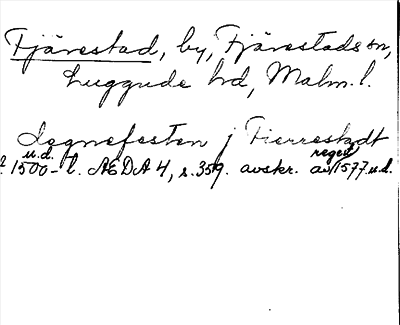 Fjärestad, by, Fjärestads sn,
Luggude hd, Malm. l.
Sognefesten j Fierrestadt
u.d. regest
? 1500- l. AEDA 4, s. 359. avskr. av 1577 u.d.